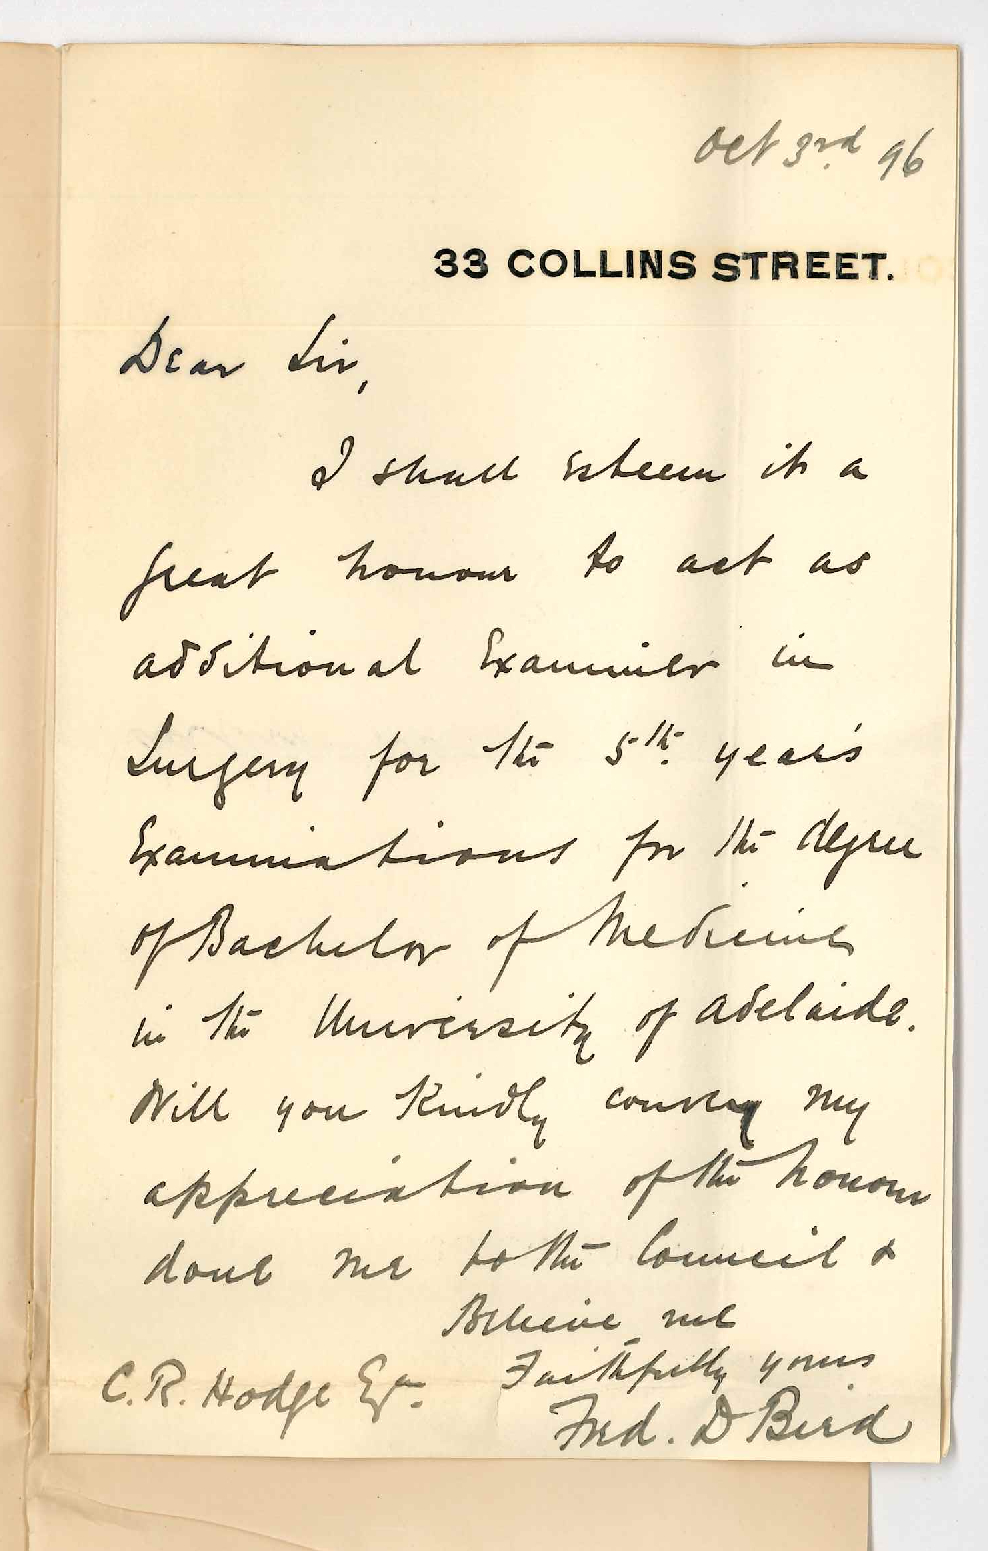 Oct 3rd 96
33 COLLINS STREET.
Dear Sir,
I shall esteem it a
great honour to act as
additional Examiner in
Surgery for the 5th. year's
Examinations for the degree
of Bachelor of Medicine
in the University of Adelaide.
Will you kindly convey my
appreciation of the honour
done me to the Council &
Believe me
Faithfully yours
C.R. Hodge Esq.
Fred. D Bird